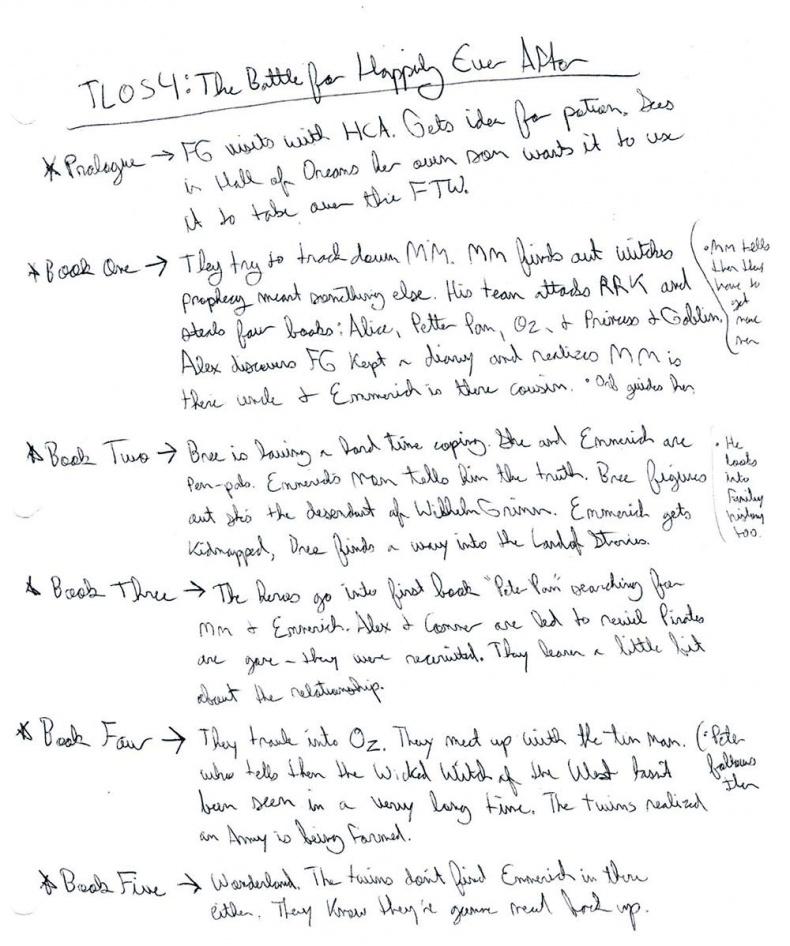 TLOS4: The Battle for Happily Ever After
* Prologue → FG visits with HCA. Gets idea for potion. Sees
in Hall of Dreams her own son wants it to use
it to take over the FTW.
* Book One → They try to track down MM. MM finds out witches
prophecy meant something else. His team attacks RRK and
steals four books: Alice, Petter Pan, Oz, & Princess & Goblin.
Alex discovers FG kept a diary and realizes MM is
there uncle & Emmerich is there cousin. • Orb guides her
• MM tells
them they
have to
get
more
men
* Book Two → Bree is having a hard time coping. She and Emmerich are
Pen-pals. Emmerich's Mom tells him the truth. Bree figures
out she's the desendant of Wilhelm Grimm. Emmerich gets
Kidnapped, Bree finds a way into the Land of Stories.
• He
looks
into
Family
history
too.
* Book Three → The heroes go into first book "Peter Pan" searching for
MM & Emmerich. Alex & Conner are led to Pirates
are gone - they were recruited. They learn a little bit
about the relationship.
* Book Four → They travel into Oz. They meet up with the tin man.
who tells them the Wicked Witch of the West hasn't
been seen in a very long time. The twins realized
an Army is being formed.
(• Peter
follows
them
* Book Five → Wonderland. The twins don't find Emmerich in there
either. They know they're gunna need back up.